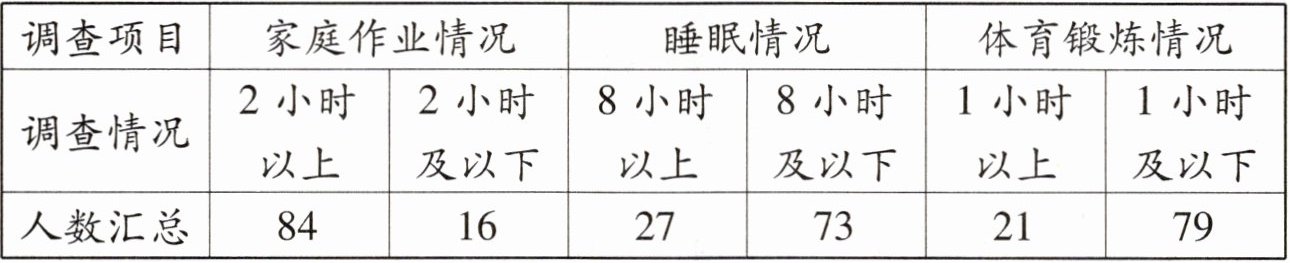 调查项目 家庭作业情况 睡眠情况 体育锻炼情况
调查情况 2小时以上 2小时及以下 8小时以上 8小时及以下 1小时以上 1小时及以下
人数汇总 84 16 27 73 21 79